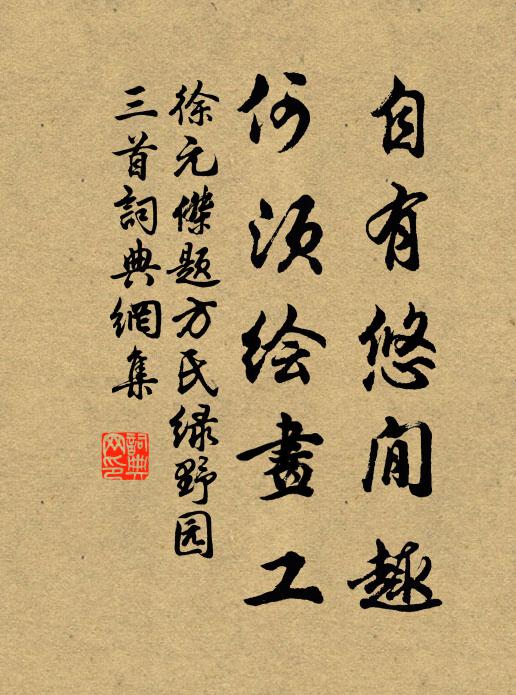 自有悠闲趣
何须绘畫工
徐元傑题方民绿野园
三首詞典網集
詞典网印